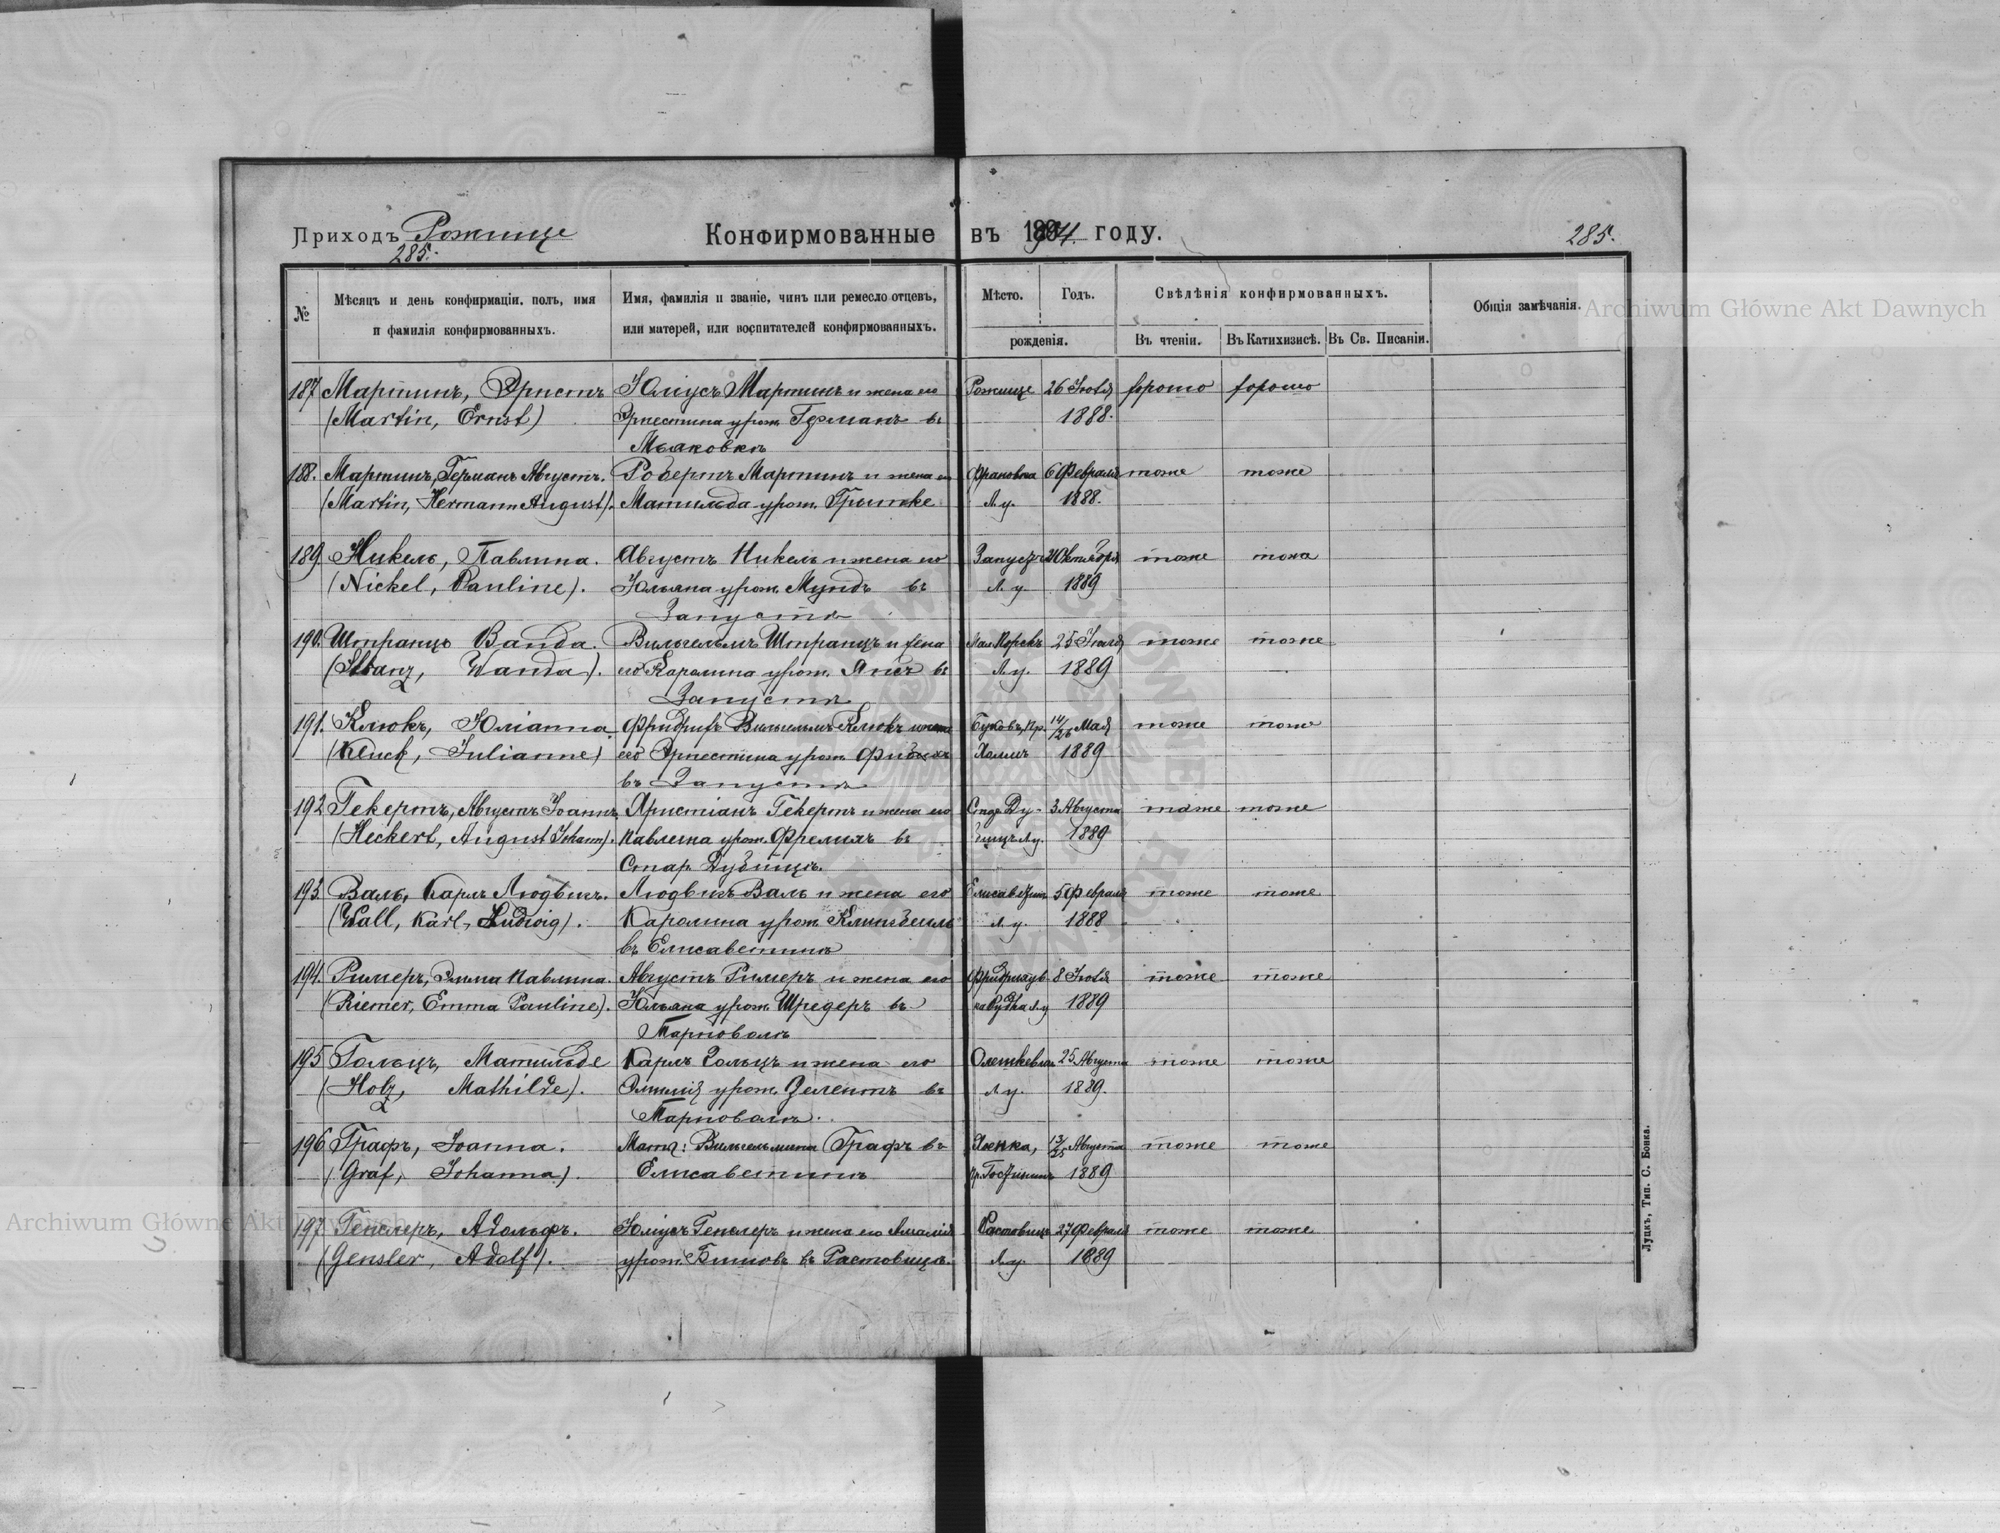 Приходъ Рожище Конфирмованные въ 1904. году. 285.
285.
№ Мѣсяцъ и день конфирмаціи, полъ, имя и фамилія конфирмованныхъ. Имя, фамилія и званіе, чинъ или ремесло отцевъ, или матерей, или воспитателей конфирмованныхъ. Мѣсто. Годъ. рожденія. Свѣдѣнія конфирмованныхъ. Въ чтеніи. Въ Катихизисѣ. Въ Св. Писаніи. Общія замѣчанія.
Archiwum Główne Akt Dawnych
187 Мартинъ, Эрнстъ Юліусъ Мартинъ и жена его Рожище 26 Іюля хорошо хорошо
(Martin, Ernst) Эрнестина урож. Германъ въ 1888.
188. Мартинъ, Германъ Августъ. Робертъ Мартинъ и жена его 6 Февраля тоже тоже
(Martin, Hermann August). Матильда урож. Л. у. 1888.
189. Никель, Павлина. Августъ Никель и жена его тоже тоже
(Nickel, Pauline). Юльяна урож. Мундъ въ Л. у. 1889
Запустѣ
190. Штранцъ Ванда. Вильгельмъ Штранцъ и жена 25 Іюля тоже тоже
(Stranz, Wanda). его Каролина урож. въ Л. у. 1889
Запустѣ
191. Клюкъ, Юліанна. Фридрихъ Вильгельмъ Клюкъ и жена 14/26 Мая тоже тоже
(Kluck, Julianne) его Эрнестина урож. Холмъ 1889
въ Запустѣ
192 Гекертъ, Августъ Іоаннъ. Христіанъ Гекертъ и жена его 3 Августа тоже тоже
(Heckert, August Johann). Павлина урож. Фрелихъ въ 1889
Стар. Дубищѣ.
193. Валь, Карлъ Людвигъ. Людвигъ Валь и жена его 5 Февраля тоже тоже
(Wall, Karl, Ludwig). Каролина урож. Л. у. 1888
въ Елисаветинѣ
194. Римеръ, Эмма Павлина. Августъ Римеръ и жена его 8 Іюля тоже тоже
(Riemer, Emma Pauline). Юльяна урож. Шредеръ въ 1889
Тарноволѣ
195 Гольцъ, Матильде Карлъ Гольцъ и жена его 25 Августа тоже тоже
(Holz, Mathilde). Эмилія урож. въ Л. у. 1889.
Тарноволѣ.
196 Графъ, Іоанна. Мать: Вильгельмина Графъ въ 13/25 Августа тоже тоже
(Graf, Johanna). Елисаветинѣ 1889
Archiwum Główne Akt Dawnych
197 Генслеръ, Адольфъ. Юліусъ Генслеръ и жена его Амалія 27 Февраля тоже тоже
(Gensler, Adolf). урож. въ Растовищѣ. Л. у. 1889
Луцкъ, Тип. С. Бонка.